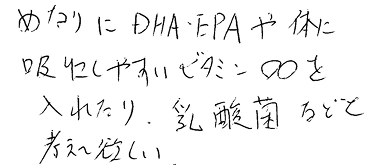 めなりにDHA・EPAや体に
吸収しやすいビタミン〇〇を
入れたり、乳酸菌などと
考えて欲しい。